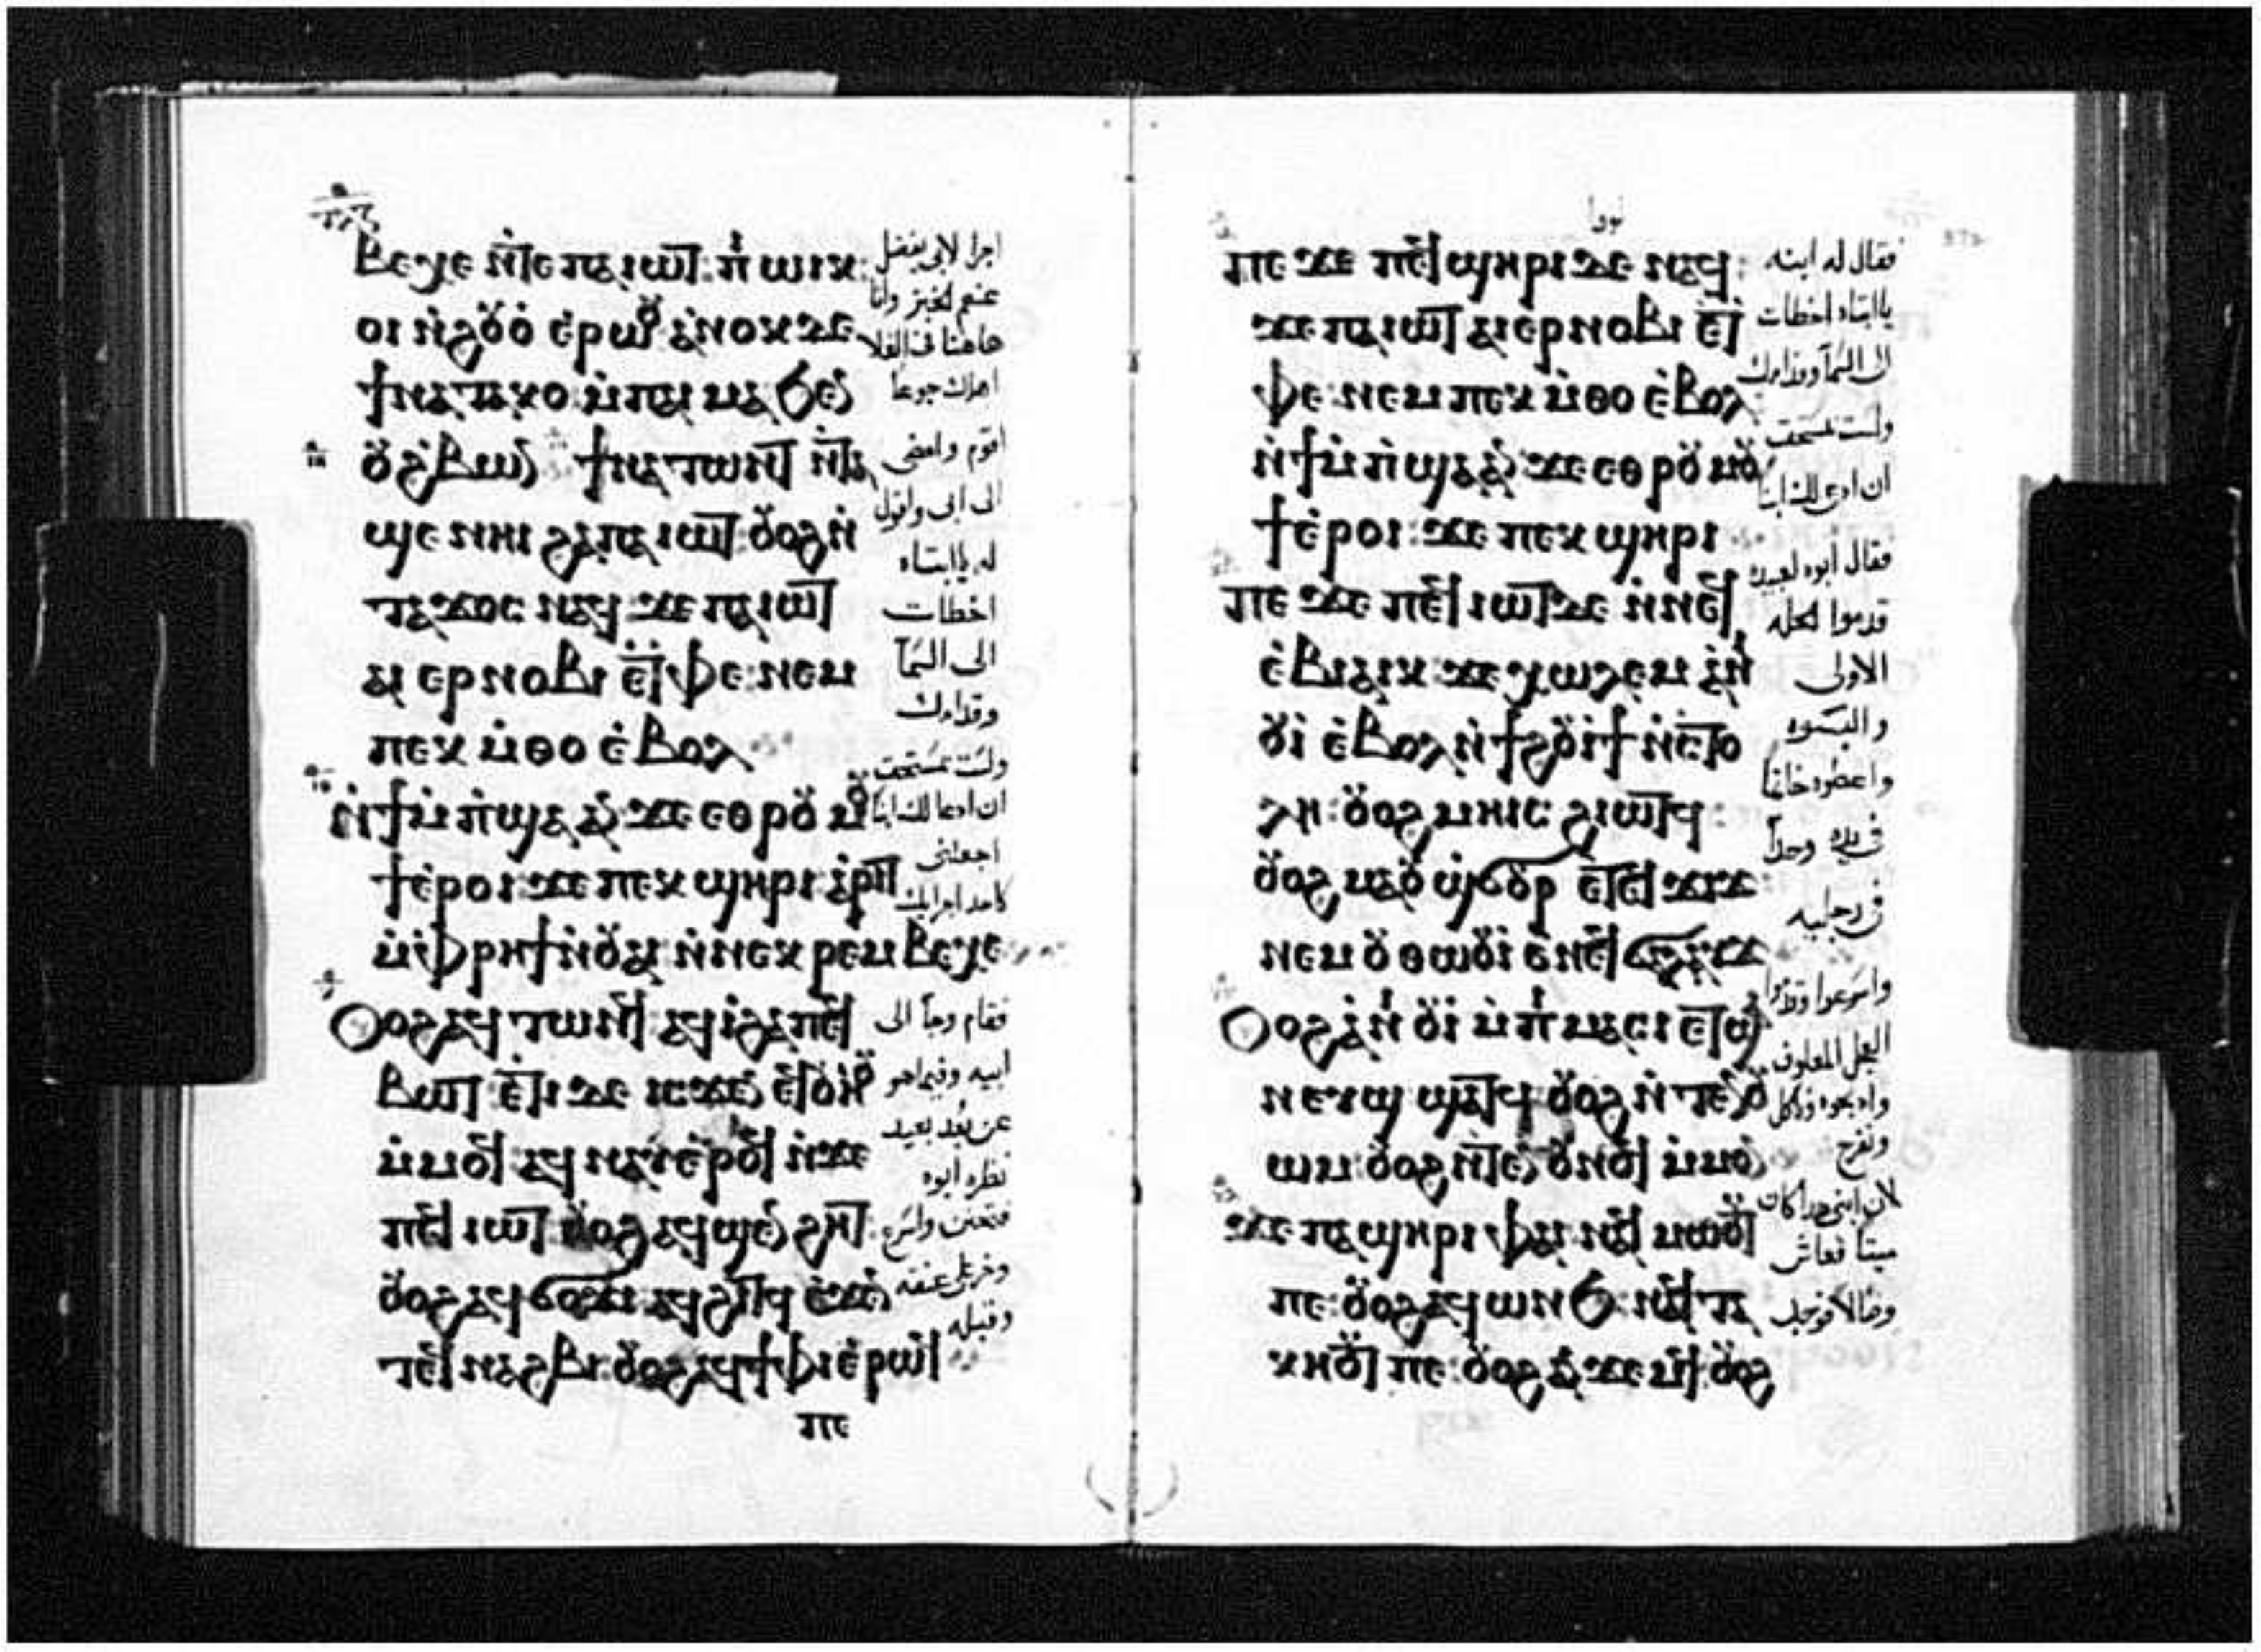 ⲃⲉⲭⲉ ⲛ̀ⲧⲉ ⲡⲁⲓⲱⲧ: ⲡ̀ ⲱⲓⲕ:
ⲟⲓ ⲛ̀ϩⲟⲩⲟ̀ ⲉ̀ⲣⲱⲟⲩ ⲁ̀ⲛⲟⲕ ⲇⲉ
ϯⲛⲁⲧⲁⲕⲟ ⲙ̀ⲡⲁⲓ ⲙⲁ ϧⲉⲛ
ⲟⲩϩ̀ⲃⲱⲛ ϯⲛⲁⲧⲱⲛⲧ ⲛ̀ⲧⲁ
ϣⲉ ⲛⲏⲓ ϩⲁ ⲡⲁⲓⲱⲧ: ⲟⲩⲟϩ ⲛ̀
ⲧⲁϫⲟⲥ ⲛⲁϥ ϫⲉ ⲡⲁⲓⲱⲧ
ⲁⲓ ⲉⲣⲛⲟⲃⲓ ⲉ̀ⲧⲫⲉ: ⲛⲉⲙ
ⲡⲉⲕ ⲙ̀ⲑⲟ ⲉ̀ⲃⲟⲗ
ⲛ̀ϯⲙ̀ⲡ̀ϣⲁ ⲁⲛ ϫⲉ ⲉⲑⲣⲟⲩ ⲙⲟⲩ
ϯ ⲉ̀ⲣⲟⲓ: ϫⲉ ⲡⲉⲕ ϣⲏⲣⲓ ⲁ̀ⲣⲓⲧ
ⲙ̀ⲫⲣⲏϯ ⲛ̀ⲟⲩⲁⲓ ⲛ̀ⲛⲉⲕ ⲣⲉⲙⲃⲉⲭⲉ
Ⲟⲩⲟϩ ⲁϥ ⲧⲱⲛϥ ⲁϥⲓ̀ ϩⲁ ⲡⲉϥ
ⲉⲧⲓ ⲇⲉ ⲓⲥϫⲉⲛ ⲉϥⲟⲩⲏⲟⲩ
ⲙ̀ⲙⲟϥ ⲁϥ ⲛⲁⲩ ⲉ̀ⲣⲟϥ ⲛ̀ϫⲉ
ⲡⲉϥ ⲓⲱⲧ ⲟⲩⲟϩ ⲁϥ ϣⲉⲛ ϩⲏⲧ
ⲟⲩⲟϩ ⲁϥ ϭⲟϫⲓ ⲁϥϩⲓⲧϥ ⲉ̀ϫⲉⲛ
ⲧⲉϥ ⲛⲁϩⲃⲓ: ⲟⲩⲟϩ ⲁϥϯⲫⲓ ⲉ̀ⲣⲱϥ
ⲡⲉ
اجرا لابى يفضل
عنهم الخبز وانا
هاهنا
اهلك جوعا
اقوم وامضى
الى ابى واقول
له ياابتاه
اخطات
الى السمآ
وقدامك
ولست مستحق
ان ادعا لك ابنا
اجعلنى
كاحد اجرايك
فقام وجآ الى
ابيه وفيما هو
عن بعد بعيد
نظره ابوه
فتحنن واسرع
وخر على عنقه
وقبله
ⲡⲉ ϫⲉ ⲡⲉϥ ϣⲏⲣⲓ ⲇⲉ ⲛⲁϥ:
ϫⲉ ⲡⲁⲓⲱⲧ ⲁⲓⲉⲣⲛⲟⲃⲓ ⲉ̀ⲧ
ⲫⲉ: ⲛⲉⲙ ⲡⲉⲕ ⲙ̀ⲑⲟ ⲉ̀ⲃⲟⲗ
ⲛ̀ϯⲙ̀ⲡ̀ϣⲁ ⲁⲛ ϫⲉ ⲉⲑⲣⲟⲩ ⲙⲟⲩ
ϯ ⲉ̀ⲣⲟⲓ: ϫⲉ ⲡⲉⲕ ϣⲏⲣⲓ
ⲡⲉ ϫⲉ ⲡⲉϥ ⲓⲱⲧ ⲇⲉ ⲛ̀ⲛⲉϥ
ⲉ̀ⲃⲓⲁⲓⲕ: ϫⲉ ⲭⲱⲗⲉⲙ ⲁ̀ⲛⲓ
ⲟⲩⲓ̀ ⲉ̀ⲃⲟⲗ ⲛ̀ϯϩⲟⲩⲓ̀ϯ ⲛ̀ⲥⲧⲟ
ⲗⲏ: ⲟⲩⲟϩ ⲙⲏⲓⲥ ϩⲓⲱⲧϥ:
ⲟⲩⲟϩ ⲙⲁ ⲟⲩ ϣ̀ϭⲟⲩⲣ ⲉ̀ⲧⲉϥ ϫⲓϫ:
ⲛⲉⲙ ⲟⲩ ⲑⲱⲟⲩⲓ̀ ⲉ̀ⲛⲉϥ ϭⲁⲗⲁⲩϫ
Ⲟⲩⲟϩ ⲁ̀ⲛⲓ ⲟⲩⲓ̀ ⲙ̀ⲡⲓ ⲙⲁⲥⲓ ⲉⲧϣ
ϣⲁⲧϥ ⲟⲩⲟϩ ⲛ̀ⲧⲉⲛⲟⲩ
ⲱⲙ: ⲟⲩⲟϩ ⲛ̀ⲧⲉⲛ ⲟⲩⲛⲟϥ ⲙ̀ⲙⲟⲛ
ϫⲉ ⲡⲁϣⲏⲣⲓ ⲫⲁⲓ ⲛⲁϥ ⲙⲱⲟⲩⲧ
ⲡⲉ: ⲟⲩⲟϩ ⲁϥ ⲱⲛϧ: ⲛⲁϥ ⲧⲁ
ⲕⲏⲟⲩⲧ ⲡⲉ: ⲟⲩⲟϩ ⲁⲛ ϫⲉⲙϥ: ⲟⲩⲟϩ
فقال له ابنه
ياابتاه اخطات
الى السمآ وقدامك
ولست مستحق
ان ادعى لك ابنا
فقال ابوه لعبيده
قدموا الحله
الاولى
والبسوه
واعطوه خاتما
فى يده وحذآ
فى رجليه
واسرعوا وقدموا
العجل المعلوف
واذبحوه وناكل
ونفرح
لان ابنى هذا كان
ميتا فعاش
وضالا فوجد